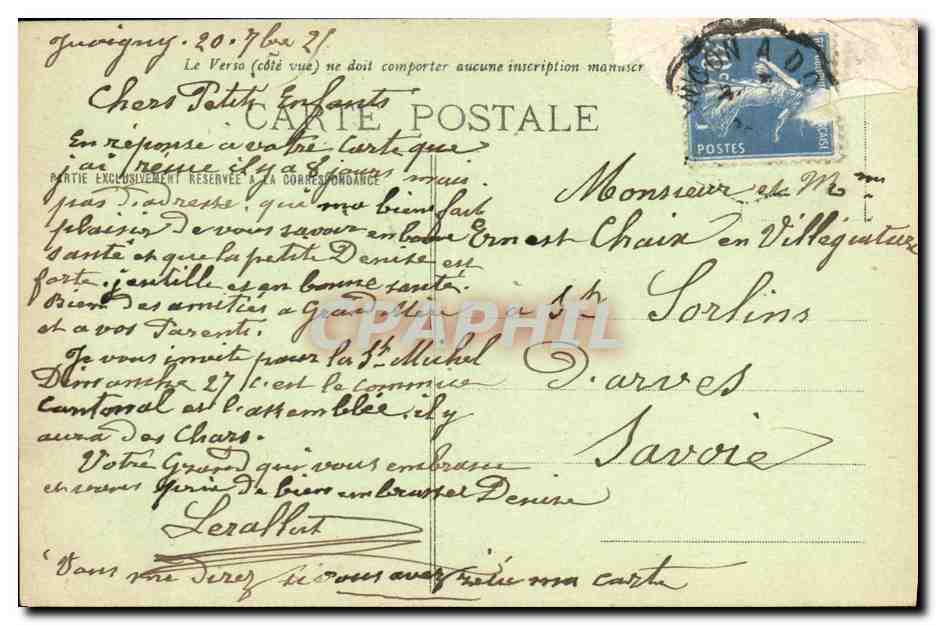 Juvigny. 20. 7bre 25
Le Verso (côté vue) ne doit comporter aucune inscription manuscr
Chers Petits Enfants
CARTE POSTALE
En réponse a votre Carte que
j'ai reçue il y a 8 jours mais
PARTIE EXCLUSIVEMENT RÉSERVÉE A LA CORRESPONDANCE
pas d'adresse. qui ma bien fait
plaisir de vous savoir en bonne
santé et que la petite Denise est
forte. jentille et en bonne santé.
Bien des amitiés a Grand Mère
et a vos Parents.
Je vous invite pour la St Michel
Dimanche 27 c'est le commice
Cantonal et l'assemblée. il y
aura des Chars.
Votre Grand qui vous embrasse
et vous prie de bien embrasser Denise
Lerallut
Vous me direz si vous avez reçu ma carte
POSTES
Monsieur et Mme
Ernest Chaix en Villégiature
a St Sorlins
D'arves
Savoie
CPAPHIL